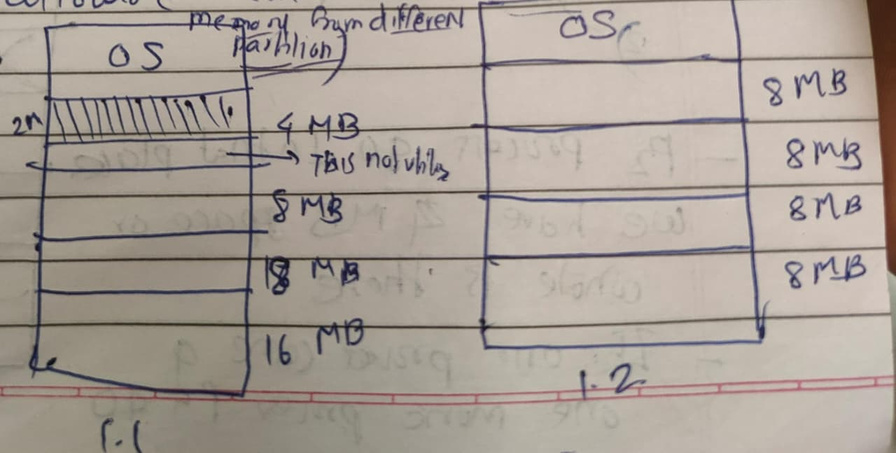 memory from different
partition)
OS
2M
4 MB
→ This not utilize
8 MB
18 MB
16 MB
1.1
OS
8 MB
8 MB
8 MB
8 MB
1.2